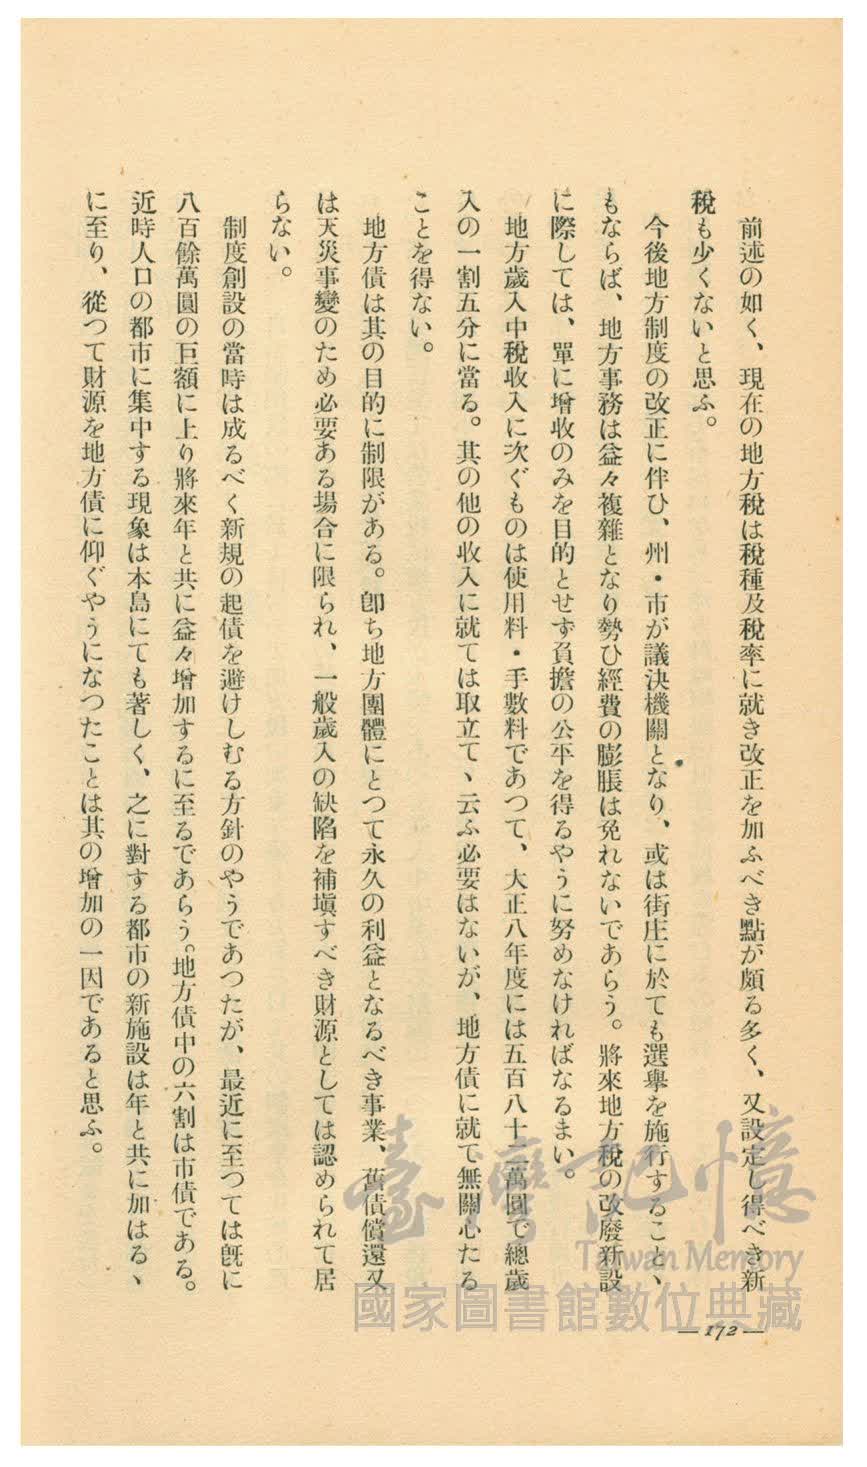 前述の如く、現在の地方稅は稅種及稅率に就き改正を加ふべき點が頗る多く、又設定し得べき新
稅も少くないと思ふ。
今後地方制度の改正に伴ひ、州・市が議決機關となり、或は街庄に於ても選擧を施行することゝ
もならば、地方事務は益々複雜となり勢ひ經費の膨脹は免れないであらう。將來地方稅の改廢新設
に際しては、單に增收のみを目的とせず負擔の公平を得るやうに努めなければなるまい。
地方歲入中稅收入に次ぐものは使用料・手數料であつて、大正八年度には五百八十二萬圓で總歲
入の一割五分に當る。其の他の收入に就ては取立てゝ云ふ必要はないが、地方債に就て無關心たる
ことを得ない。
地方債は其の目的に制限がある。卽ち地方團體にとつて永久の利益となるべき事業、舊債償還又
は天災事變のため必要ある場合に限られ、一般歲入の缺陷を補塡すべき財源としては認められて居
らない。
制度創設の當時は成るべく新規の起債を避けしむる方針のやうであつたが、最近に至つては旣に
八百餘萬圓の巨額に上り將來年と共に益々增加するに至るであらう。地方債中の六割は市債である。
近時人口の都市に集中する現象は本島にても著しく、之に對する都市の新施設は年と共に加はるゝ
に至り、從つて財源を地方債に仰ぐやうになつたことは其の增加の一因であると思ふ。
— 172 —
臺灣記憶
Taiwan Memory
國家圖書館數位典藏